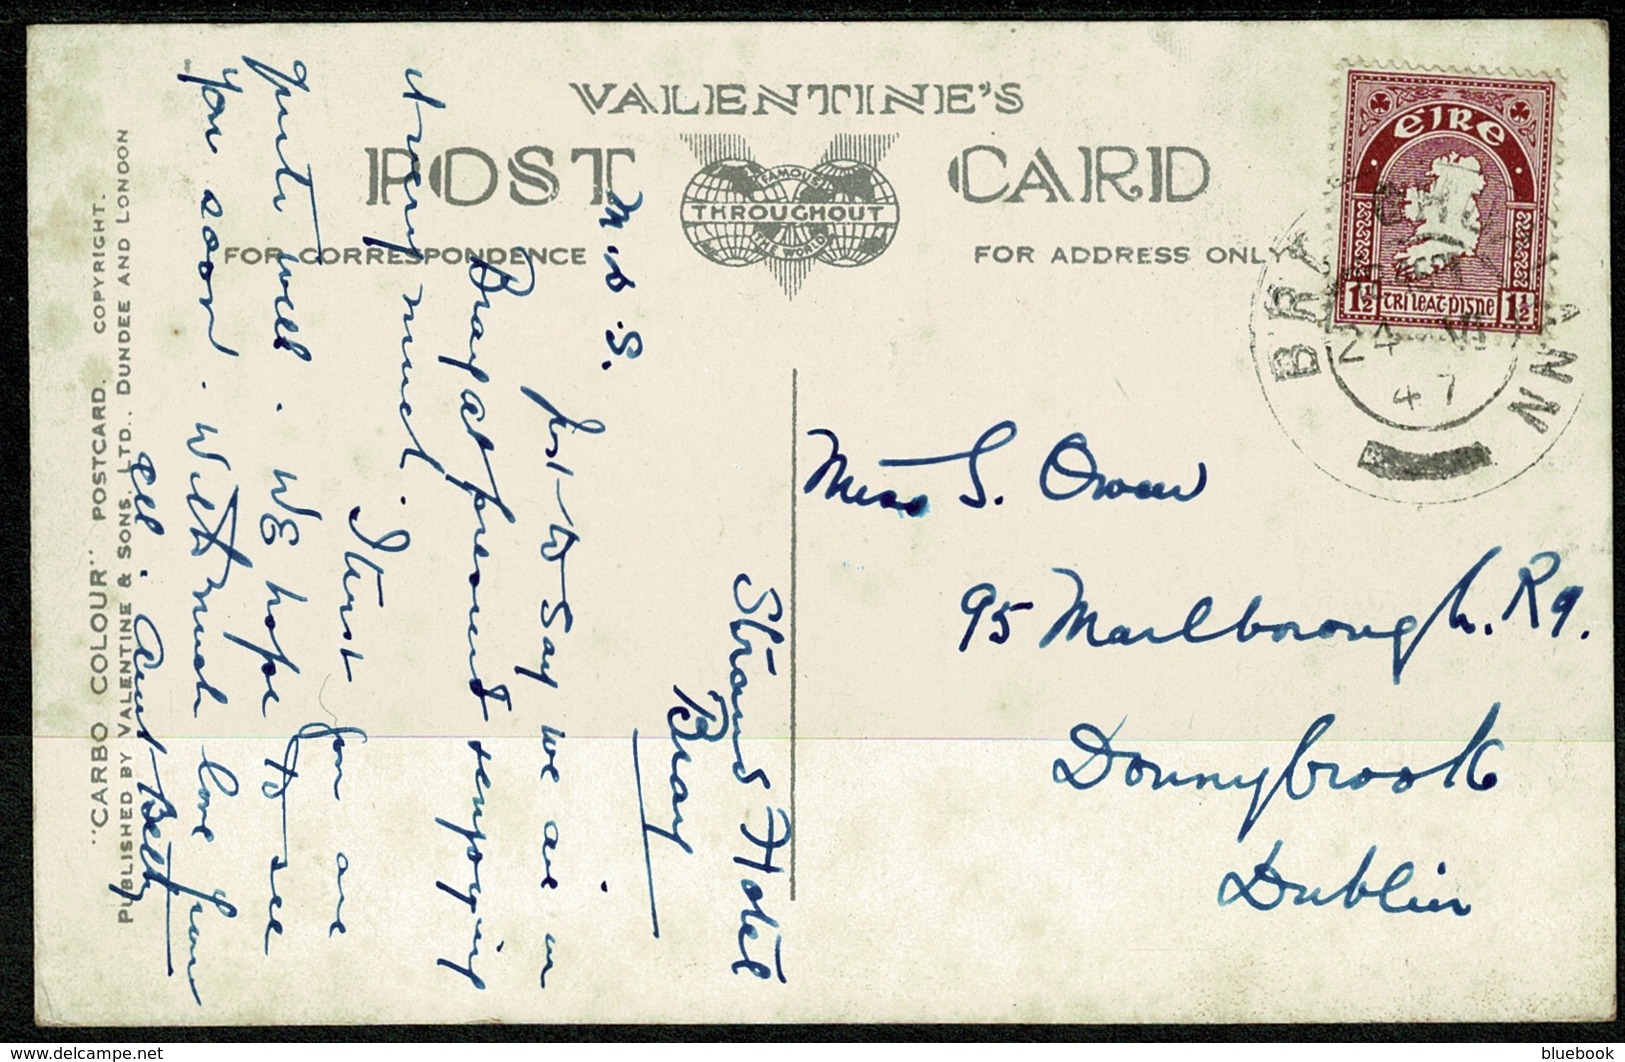 VALENTINE'S
POST CARD
FAMOUS
THROUGHOUT
THE WORLD
FOR CORRESPONDENCE
FOR ADDRESS ONLY
EIRE
1½ trí leat-pigne 1½
BRÉ
24 VI
47
Strand Hotel
Bray
Just to Say we are in
Bray at present & enjoying
it very much.
I trust you are
quite well. WE hope to see
you soon. With much love from
all. Aunt Betty
Miss S. Owen
95 Marlborough. Rd.
Donnybrook
Dublin
"CARBO COLOUR" POSTCARD. COPYRIGHT.
PUBLISHED BY VALENTINE & SONS, LTD., DUNDEE AND LONDON
delcampe.com
bluebook